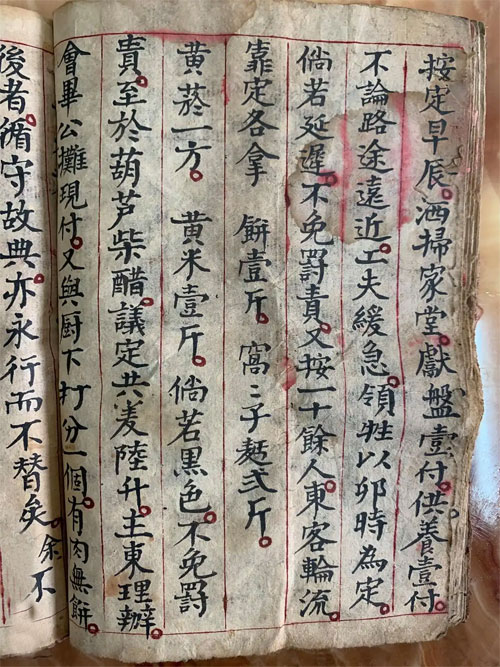 按定早辰。洒掃家堂。獻盤壹付。供養壹付。
不論路途遠近。工夫緩急。領牲以卯時為定。
倘若延遲。不免罰責。又按一十餘人。東客輪流。
靠定各拿 餅壹斤。窩〻子麪弍斤。
黄菸一方。 黄米壹斤。倘若黑色。不免罰
責。至於葫芦柴醋。議定共麦陸升。主東理辦。
會畢公攤現付。又與厨下打分一個。有肉無餅。
後者。循守故典。亦永行而不替矣。余不